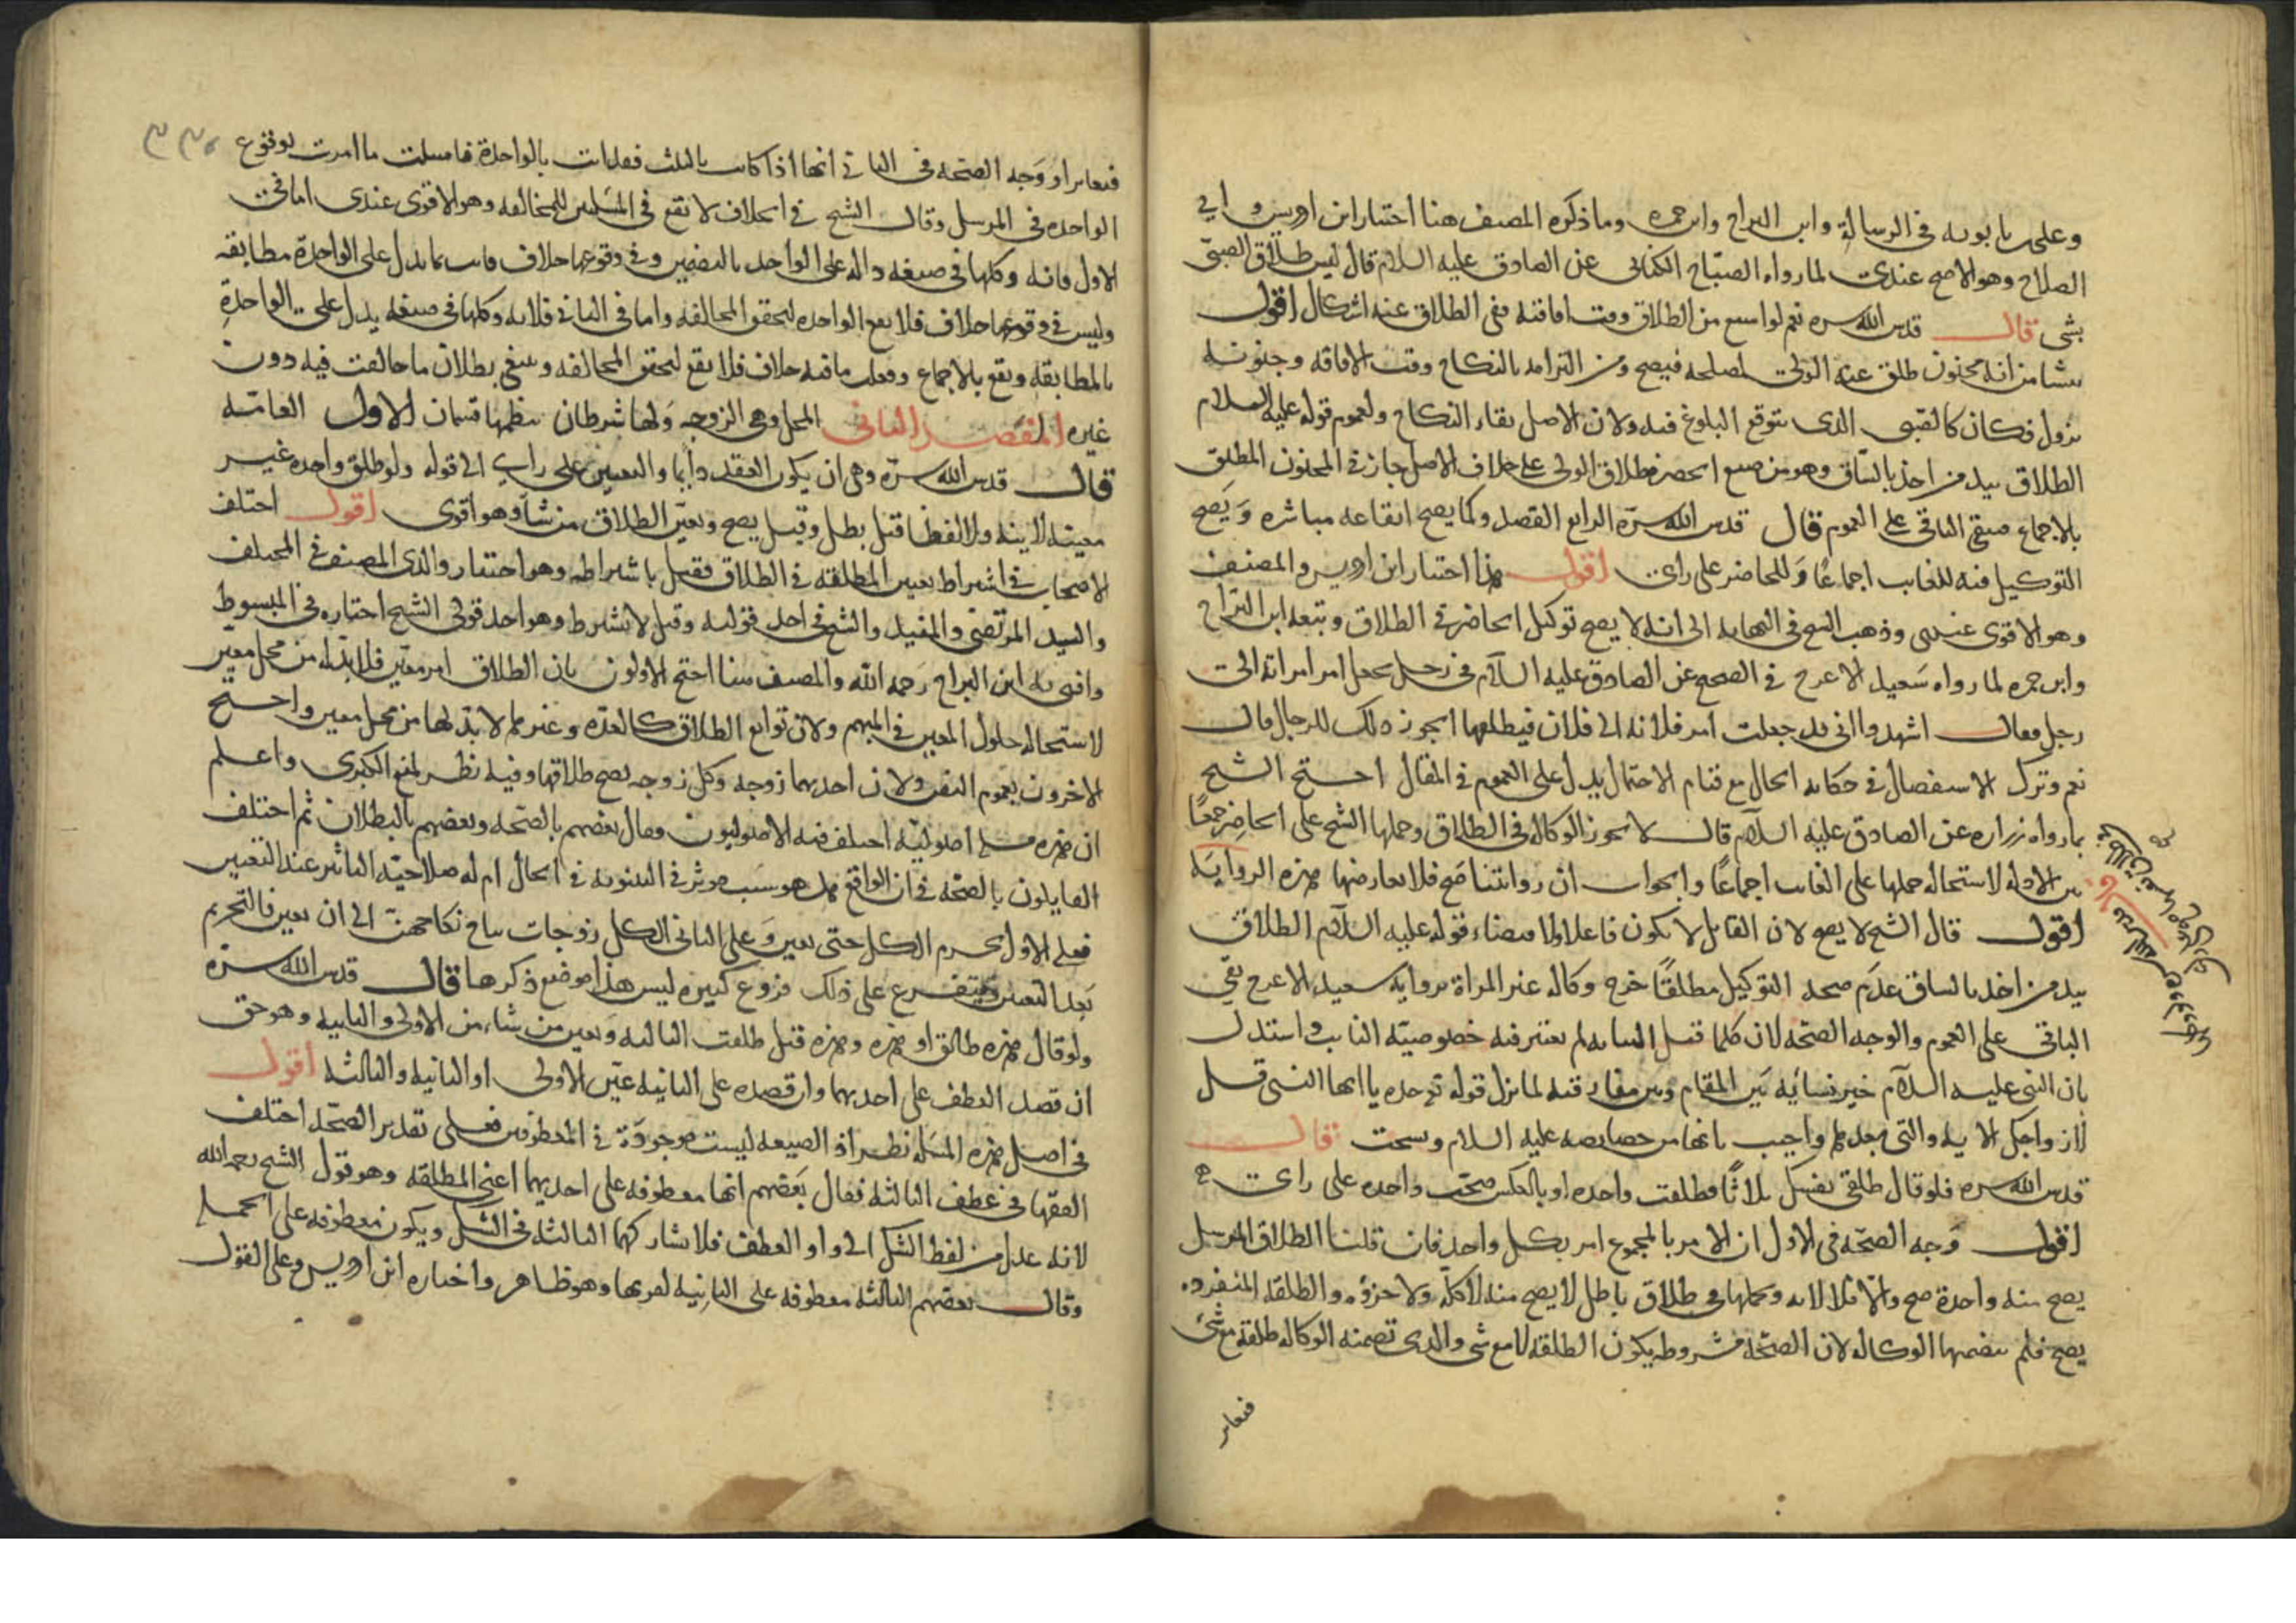 وعلى بن بابويه فى الرسالة وابن البراج وابن حمزه وما ذكره المصنف هنا اختيار ابن ادريس و ابي
الصلاح وهو الاصح عندى لما رواه الصباح الكنانى عن الصادق عليه السلام قال ليس طلاق الصبى
بشى قال قدس الله سره نعم لو امتنع من الطلاق وقت افاقته ففى الطلاق عنه اشكال اقول
ينشا من انه مجنون طلق عنه الولى لمصلحه فيصح ومن التزامه بالنكاح وقت الافاقه وجنونه
يزول فكان كالصبى الذى يتوقع البلوغ فيه ولان الاصل بقاء النكاح ولعموم قوله عليه السلام
الطلاق بيد من اخذ بالساق وهو من صيغ الحصر فطلاق الولى على خلاف الاصل جاز فى المجنون المطبق
بالاجماع فبقى الباقى على العموم قال قدس الله سره الرابع القصد وكما يصح ايقاعه مباشره وَيَصح
التوكيل فيه للغايب اجماعًا وَللحاضر على راى اقول هذا اختيار ابن ادريس والمصنف
وهو الاقوى عندى وذهب الشيخ فى النهايه الى انه لا يصح توكيل الحاضر فى الطلاق وتبعه ابن البراج
وابن حمزه لما رواه سَعيد الاعرج فى الصحيح عن الصادق عليه السلام فى رجل يجعل امر امراته الى
رجل فقال اشهدوا انى قد جعلت امر فلانه الى فلان فيطلقها ايجوز ذلك للرجل قال
نعم وترك الاستفصال فى حكايه الحال مع قيام الاحتمال يدل على العموم فى المقال احتج الشيخ
بما رواه زراره عن الصادق عليه السلام قال لا تجوز الوكاله فى الطلاق وحملها الشيخ على الحاضِر جمعًا
بين الادله لاستحاله حملها على الغايب اجماعًا والجواب ان روايتنا اصَح فلا يعارضها هذه الروايَه
اقول قال الشيخ لا يصح لان القابل لا يكون فاعلا ولما اقتضاه قوله عليه السلام الطلاق
بيد من اخذ بالساق عَدَم صحه التوكيل مطلقًا خرج وكاله غير المراة بروايه سعيد الاعرج بقى
الباقى على العموم والوجه الصحّه لان كلما قبل النيابه لم يعتبر فيه خصوصيّه النايب واستدل
بان النبى عليه السلام خير نسائه بَين المقام وبين مفارقته لما نزل قوله تع وحده يا ايها النبى قل
لازواجك الايه والتى بعدها واجيب بانها من خصايصه عليه السلام وسحت قال
قدس الله سره فلو قال طلقى نفسك ثلاثًا فطلقت واحده او بالعكس صحّت واحده على راى
اقول وَجه الصحّه فى الاول ان الامر بالمجموع امر بكل واحد فان قلنا الطلاق المرسل
يصح منه واحدة صح والّا فلا لانه وكلها فى طلاق باطل لا يصح منه لا كلّه ولا جزؤه والطلقه المنفرده
يصح فلم يتضمنها الوكاله لان الصحّه مشروطه بكون الطلقه لا مع شى والذى تضمنه الوكاله طلقه مع شى
فتغاير
فتغايرا ووَجه الصحّه فى الثانى انها اذا كانت بالثلث فعلت بالواحدة فامتثلت ما امرت بوقوع
الواحده فى المرسل وقال الشيخ فى الخلاف لا تقع فى المسَلتين للمخالفه وهو الاقوى عندى اما فى
الاول فانه وكلها فى صيغه داله على الواحد بالتضمين وفى وقوعها خلاف فاتت بما يدل على الواحدة مطابقه
وليس فى وقوعها خلاف فلا يقع الواحده لتحقق المخالفه واما فى الثانى فلانه وكلها فى صيغه يدل على الواحدةِ
بالمطابقه ويقع بالاجماع وفعلت ما فيه خلاف فلا يقع لتحقق المخالفه وينبغى بطلان ما خالفت فيه دون
غيره المقصد الثانى المحل وهى الزوجه وَلها شرطان ينظمها قسمان الاول العامّه
قال قدس الله سرّه وهى ان يكون العقد دائما والتعيين على راى الى قوله ولو طلق واحده غير
معينه لا نيه ولا لفظا قيل بطل وقيل يصح ويعيّن الطلاق من شآء وهو اقوى اقول اختلف
الاصحاب فى اشتراط تعيين المطلقه فى الطلاق فقيل باشتراطه وهو اختيار والدى المصنف فى المختلف
والسيد المرتضى والمفيد والشيخ فى احد قوليه وقيل لا تشترط وهو احد قولى الشيخ اختاره فى المبسوط
وافتى به ابن البراج رَحمه الله والمصنف هنا احتج الاولون بان الطلاق امر معيّن فلا بد له من محل معين
لاستحاله حلول المعين فى المبهم ولان توابع الطلاق كالعده وغيرها لا بد لها من محل معين واحتج
الاخرون بعموم النص ولان احديهما زوجه وكل زوجه يصح طلاقها وفيه نظر لمنع الكبرى واعلم
ان هذه مسله اصوليّه اختلف فيه الاصوليون وقال بعضهم بالصحّه وبعضهم بالبطلان ثم اختلف
القايلون بالصحّه فى ان الواقع هل هو سَبب موثر فى البينونه فى الحال ام له صلاحيّه التاثير عند التعيين
فعلى الاول يحرم الكل حتى يعين وَعلى الثانى الكل زوجات يباح نكاحهن الى ان يعين فالتحريم
بَعد التعيين ويتفرع على ذلك فروع كثيره ليس هذا موضع ذكرها قال قدس الله سره
ولو قال هذه طالق او هذه وهذه قيل طلقت الثالثه وَيعين من شاء من الاولى والثانيه وهو حق
ان قصد العطف على احديهما وان قصده على الثانيه عيّن الاولى او الثانيه والثالثه اقول
فى اصل هذه المسَله نظر اذ الصيغه ليست موجودة فى المعطوف فعلى تقدير الصحّه اختلف
الفقها فى عطف الثالثه فقال بَعضهم انها معطوفه على احديهما اعنى المطلقه وهو قول الشيخ رحمه الله
لانه عدل من لفظ الشك الى واو العطف فلا تشاركهما الثالثه فى الشك ويكون معطوفه على الجمله
وقال بعضهم الثالثه معطوفه على الثانِيه لقربها وهو ظاهر واختاره ابن ادريس وعلى القول